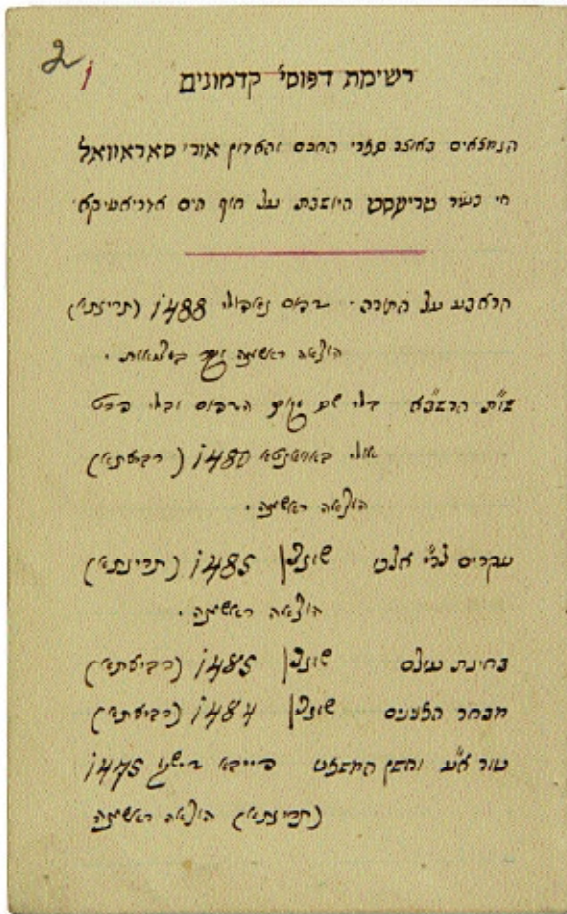 2 1
רשימת דפוסי קדמונים
הנמצאים באוצר ספרי החכם והאדון אורי סאראוואל
חי בעיר טריעסט היושבת על חוף הים אדריאטיקא
על התורה. דפוס נאפולי 1488
הוצאה ראשונה
שו״ת הרשב״א בלי שם מקום הדפוס ובלי פרט
אולי 1480
הוצאה ראשונה.
עקרים לר׳י אלבו שונצין 1485
הוצאה ראשונה.
בחינת עולם שונצין 1485
מבחר הפנינים שונצין 1484
טור א״ח וחשן המשפט פייבא די 1475
הוצאה ראשונה